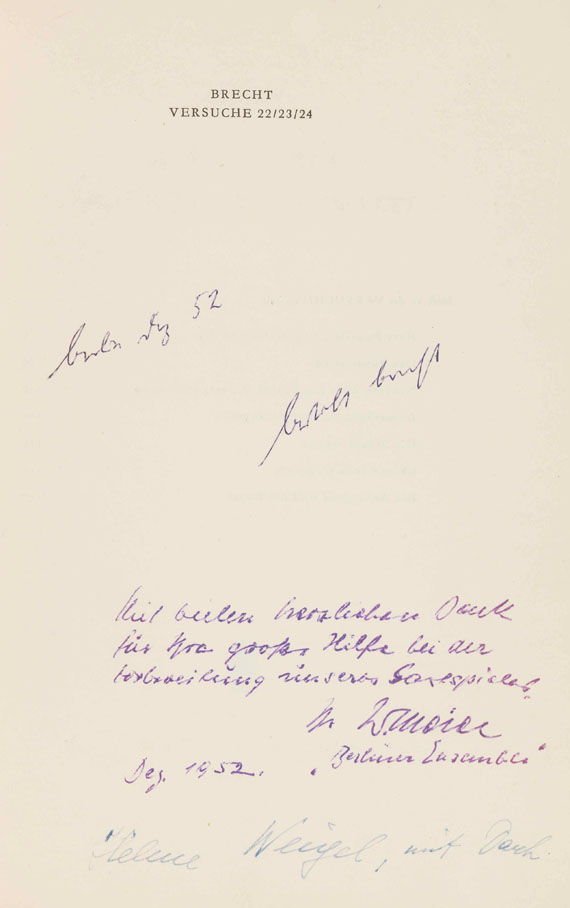 BRECHT
VERSUCHE 22/23/24
berlin dez 52
bertolt brecht
Mit vielen herzlichen Dank
für Ihre große Hilfe bei der
Vorbereitung unseres Gastspieles,
Ihr
Dez. 1952. „Berliner Ensemble“
Helene Weigel, mit Dank.